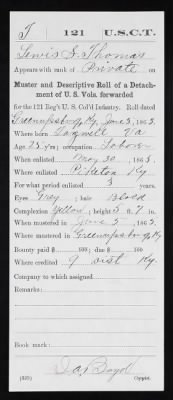 T | 121 | U.S.C.T.
Lewis S. Thomas
Appears with rank of Private on
Muster and Descriptive Roll of a Detach-
ment of U. S. Vols. forwarded
for the 121 Reg't U. S. Col'd Infantry. Roll dated
Greenupsburg, Ky. June 3, 1865.
Where born Tazwell Va
Age 23 y'rs; occupation Laborer
When enlisted May 30, 1865.
Where enlisted Piketon Ky
For what period enlisted 3 years.
Eyes Grey; hair Black
Complexion Yellow; height 5 ft. 7 in.
When mustered in June 3, 1865.
Where mustered in Greenupsburg, Ky
Bounty paid $ 100; due $ 100
Where credited 9 Dist Ky.
Company to which assigned
Remarks:
Book mark:
Boyd
Copyist.